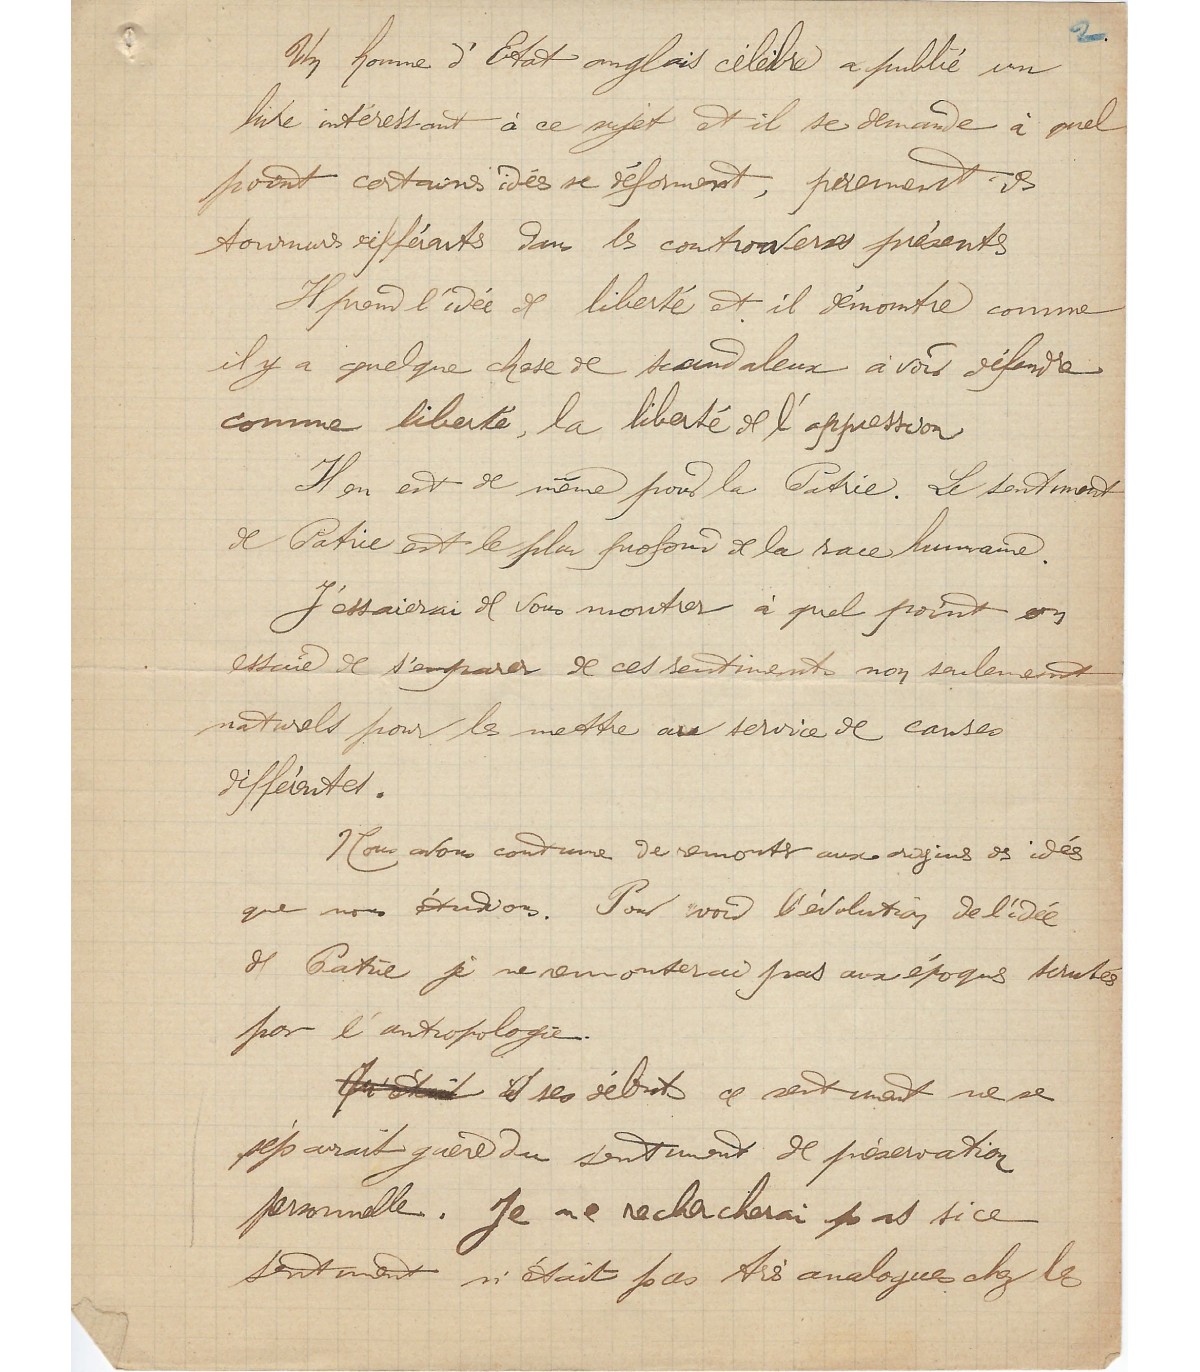 2.
Un homme d'Etat anglais célèbre a publié un
livre intéressant à ce sujet et il se demande à quel
point certaines idés se déforment, prennent des
tournures différents dans les controverses présents
Il prend l'idée de liberté et il démontre comme
il y a quelque chose de scandaleux à voir défendre
comme liberté, la liberté de l'oppression
Il en est de même pour la Patrie. Le sentiment
de Patrie est le plus profond de la race humaine.
J'essaierai de vous montrer à quel point on
essaie de s'emparer de ces sentiments non seulement
naturels pour les mettre au service de causes
différentes.
Nous avons coutume de remonter aux origines des idés
que nous étudions. Pour voir l'évolution de l'idée
de Patrie je ne remonterai pas aux époques scrutés
par l'antropologie.
Qu'était à ses débuts ce sentiment ne se
séparait guère du sentiment de préservation
personnelle. Je ne rechercherai pas si ce
sentiment n'était pas très analogue chez les